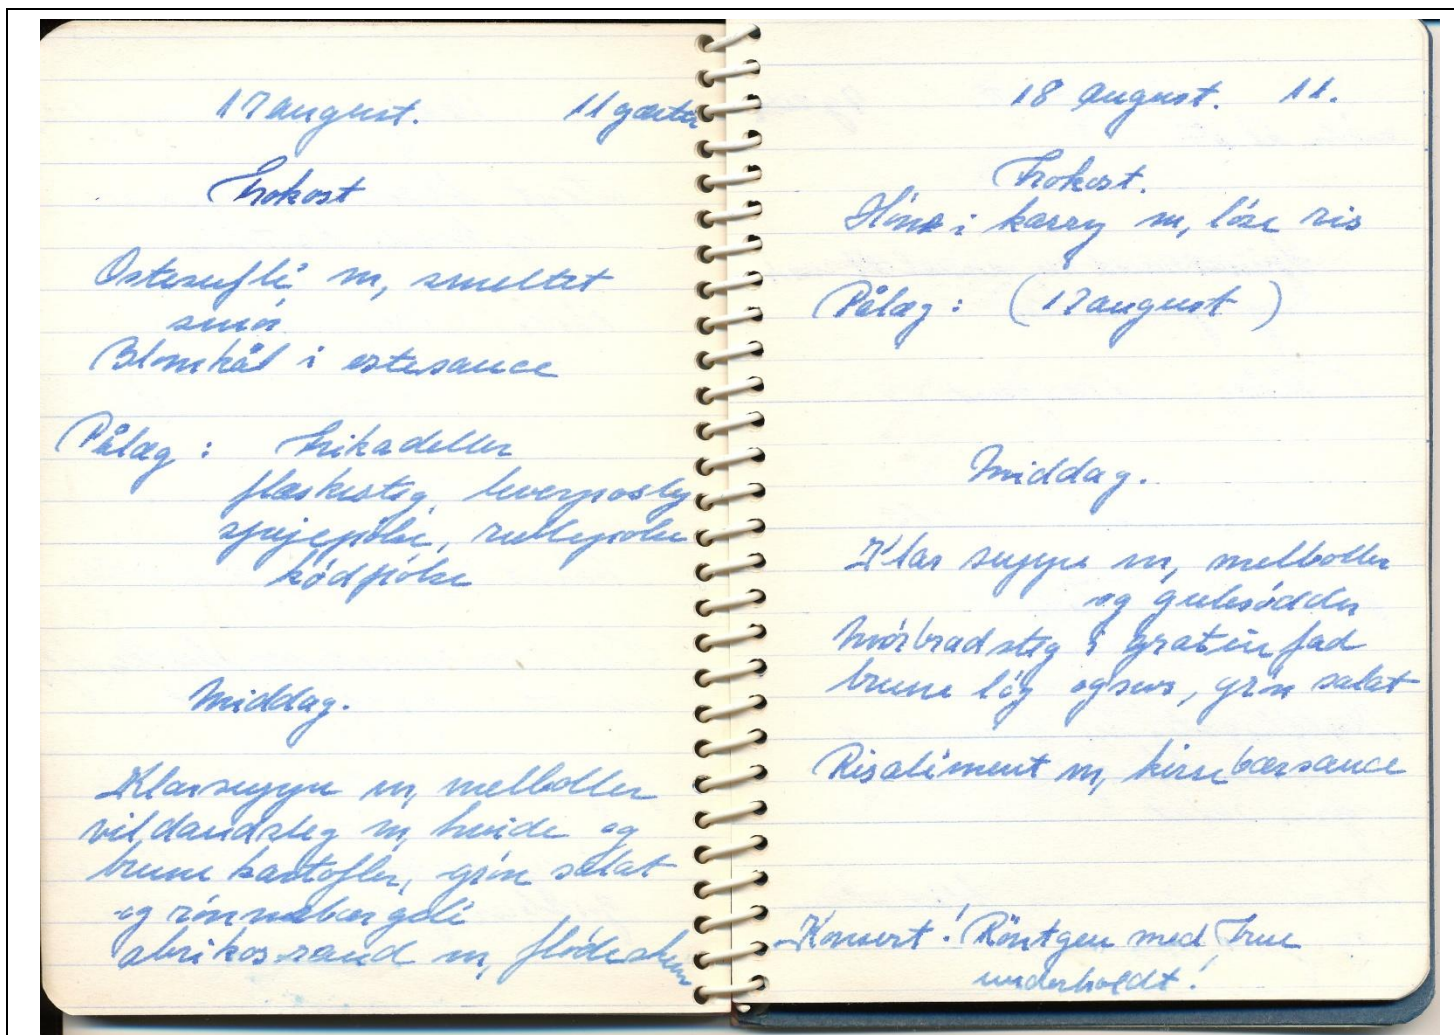 17 august. 11 gæster
Frokost
Ostesuflé m, smeltet
smör
Blomkål i ostesauce
Pålæg: Frikadeller
flæskesteg leverpostej
spejepölse, rullepölse
ködpölse
Middag.
Klarsuppe m, melboller
vildandsteg m, hvide og
brune kartofler, grön salat
og rönnebærgelé
abrikosrand m, flödeskum
18 august. 11.
Frokost.
Höns i karry m, löse ris
Pålæg: (17 august)
Middag.
Klar suppe m, melboller
og gulerödder
Mörbradsteg i gratinfad
brune lög og sovs, grön salat
Risaliment m, kirsebærsauce
Konsert! Röntgen med Frue
underholdt!